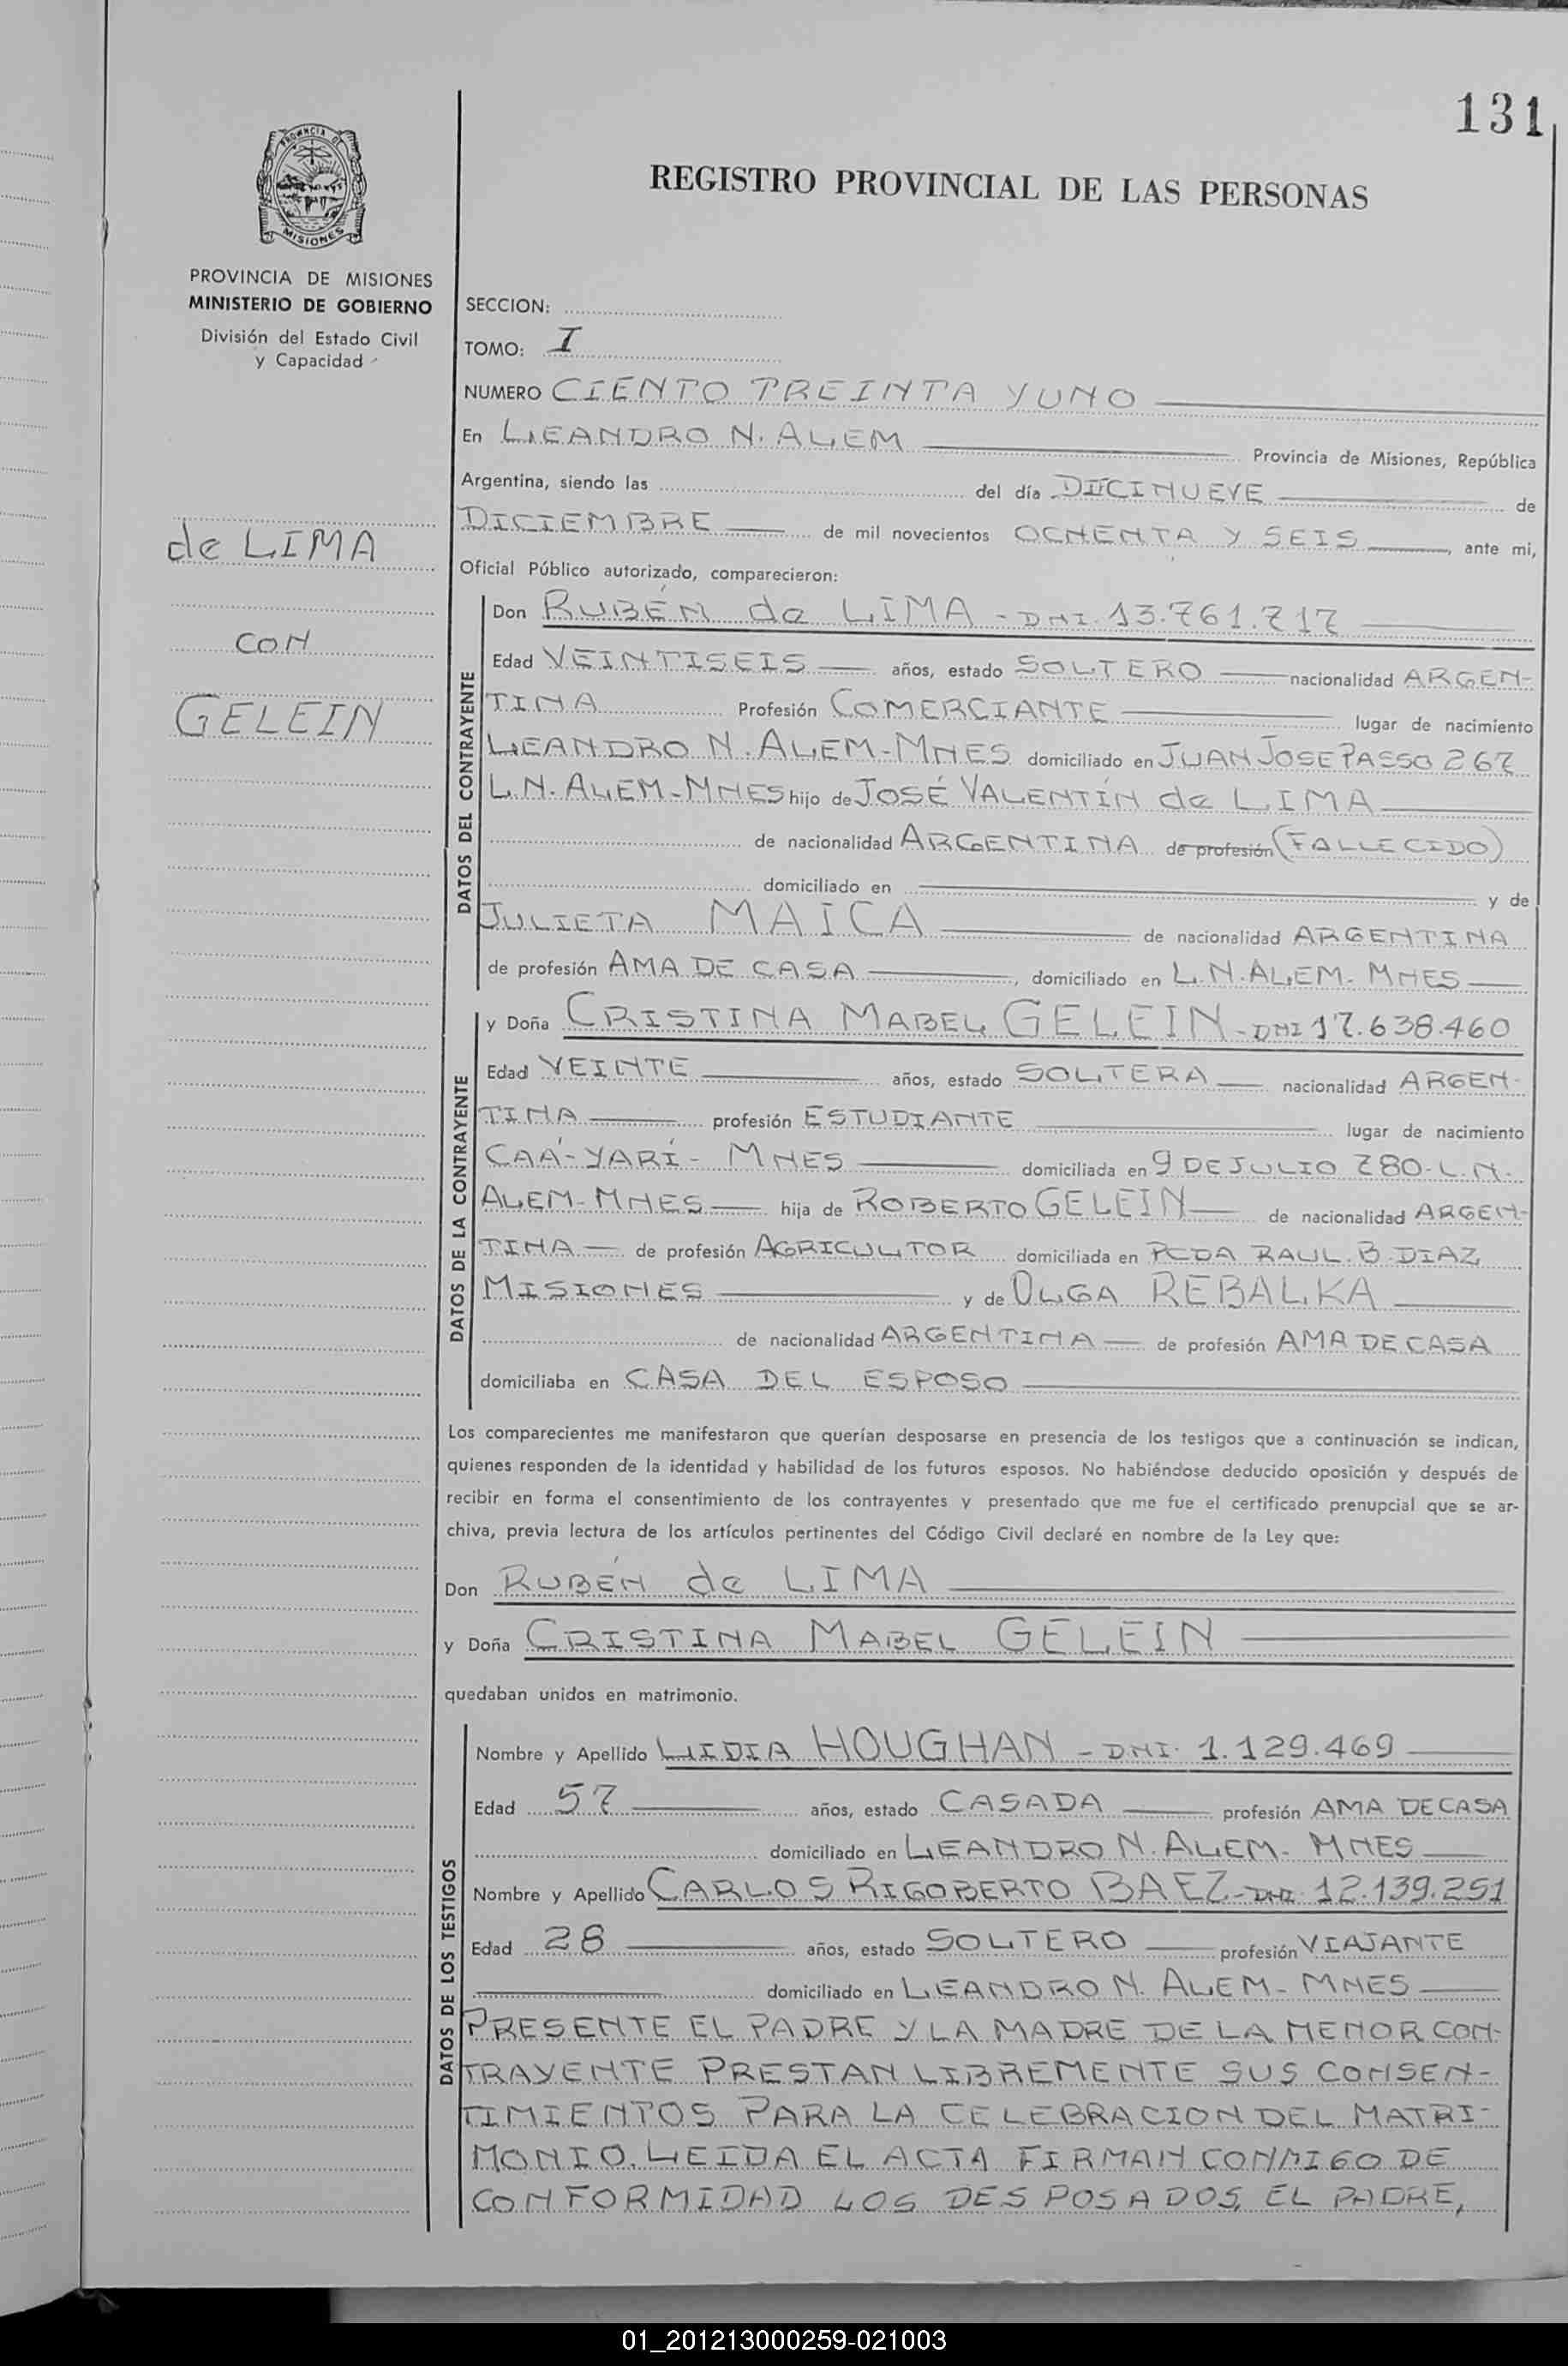 131
PROVINCIA DE
MISIONES
REGISTRO PROVINCIAL DE LAS PERSONAS
PROVINCIA DE MISIONES
MINISTERIO DE GOBIERNO
División del Estado Civil
y Capacidad
de LIMA
CON
GELEIN
SECCION:
TOMO: I
NUMERO CIENTO TREINTA Y UNO
En LEANDRO N. ALEM Provincia de Misiones, República
Argentina, siendo las del día DIECINUEVE de
DICIEMBRE de mil novecientos OCHENTA Y SEIS, ante mi,
Oficial Público autorizado, comparecieron:
DATOS DEL CONTRAYENTE
Don RUBÉN de LIMA - DNI. 13.761.717
Edad VEINTISEIS años, estado SOLTERO nacionalidad ARGEN-
TINA Profesión COMERCIANTE lugar de nacimiento
LEANDRO N. ALEM-MNES domiciliado en JUAN JOSE PASSO 267
L.N. ALEM-MNES hijo de JOSÉ VALENTÍN de LIMA
de nacionalidad ARGENTINA de profesión (FALLECIDO)
domiciliado en y de
JULIETA MAICA de nacionalidad ARGENTINA
de profesión AMA DE CASA, domiciliado en L.N. ALEM- MNES
DATOS DE LA CONTRAYENTE
y Doña CRISTINA MABEL GELEIN - DNI 17.638.460
Edad VEINTE años, estado SOLTERA nacionalidad ARGEN-
TINA profesión ESTUDIANTE lugar de nacimiento
CAÁ-YARÍ- MNES domiciliada en 9 DE JULIO 780-L.N.
ALEM-MNES hija de ROBERTO GELEIN de nacionalidad ARGEN-
TINA de profesión AGRICULTOR domiciliada en PCDA RAUL.B.DIAZ
MISIONES y de OLGA REBALKA
de nacionalidad ARGENTINA de profesión AMA DE CASA
domiciliaba en CASA DEL ESPOSO
Los comparecientes me manifestaron que querían desposarse en presencia de los testigos que a continuación se indican,
quienes responden de la identidad y habilidad de los futuros esposos. No habiéndose deducido oposición y después de
recibir en forma el consentimiento de los contrayentes y presentado que me fue el certificado prenupcial que se ar-
chiva, previa lectura de los artículos pertinentes del Código Civil declaré en nombre de la Ley que:
Don RUBÉN de LIMA
y Doña CRISTINA MABEL GELEIN
quedaban unidos en matrimonio.
DATOS DE LOS TESTIGOS
Nombre y Apellido LIDIA HOUGHAN - DNI. 1.129.469
Edad 57 años, estado CASADA profesión AMA DE CASA
domiciliado en LEANDRO N. ALEM- MNES
Nombre y Apellido CARLOS RIGOBERTO BAEZ - DNI 12.139.251
Edad 28 años, estado SOLTERO profesión VIAJANTE
domiciliado en LEANDRO N. ALEM- MNES
PRESENTE EL PADRE Y LA MADRE DE LA MENOR CON-
TRAYENTE PRESTAN LIBREMENTE SUS CONSEN-
TIMIENTOS PARA LA CELEBRACION DEL MATRI-
MONIO. LEIDA EL ACTA FIRMAN CONMIGO DE
CONFORMIDAD LOS DESPOSADOS, EL PADRE,
01_201213000259-021003